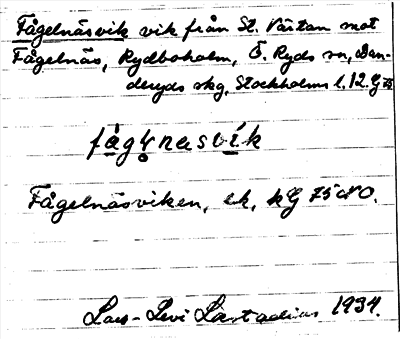 Fågelnäsvik vik från St. Värtan mot
Fågelnäs, Rydboholm, Ö. Ryds sn, Dan-
deryds skg, Stockholms l. 12. G
fågḷnasvik
Fågelnäsviken, ek, kG 75 NO.
Lars-Levi Læstadius 1934.